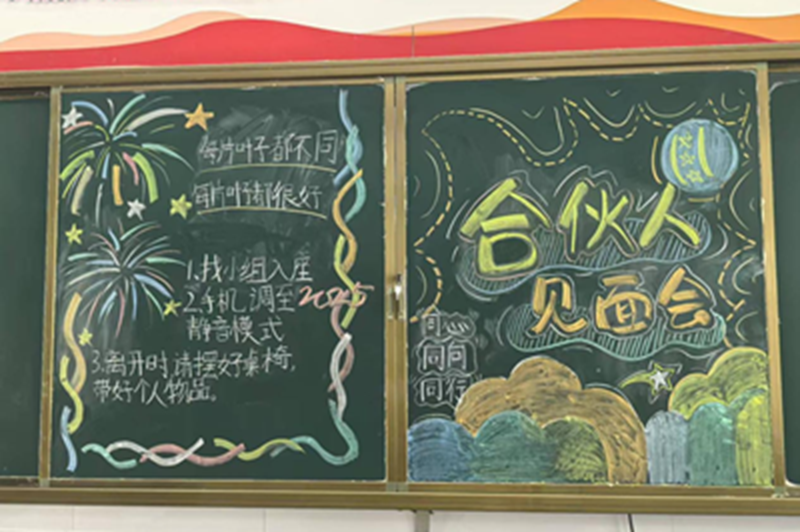 每片叶子都不同
每片叶子都很好
1.找小组入座
2.手机调至
静音模式
3.离开时,请摆好桌椅,
带好个人物品。
2025
合伙人
见面会
同心
同向
同行